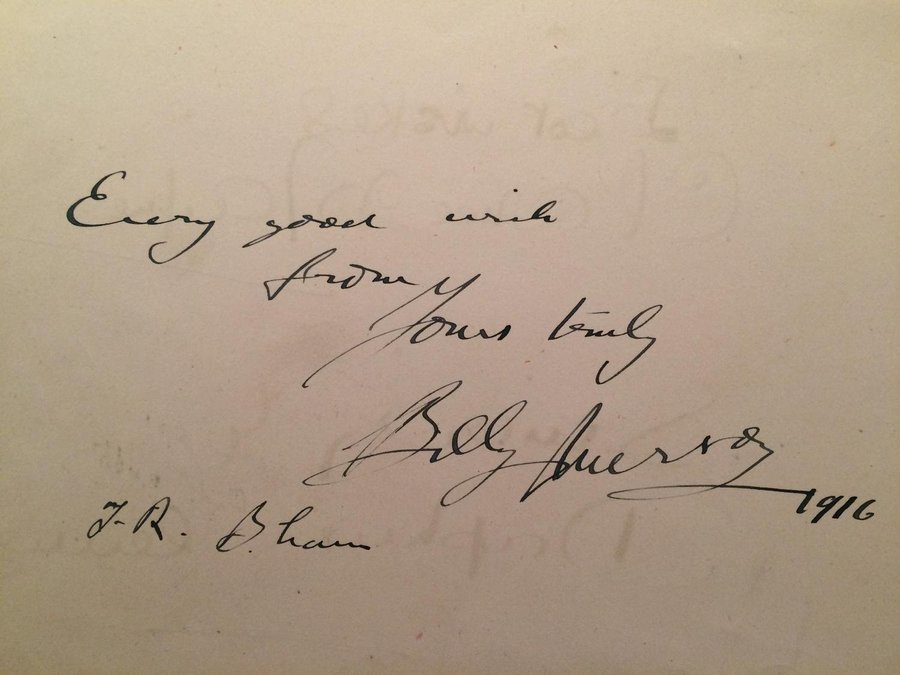 Every good wish
from
Yours truly
Billy Merson
1916
T-R. B.ham